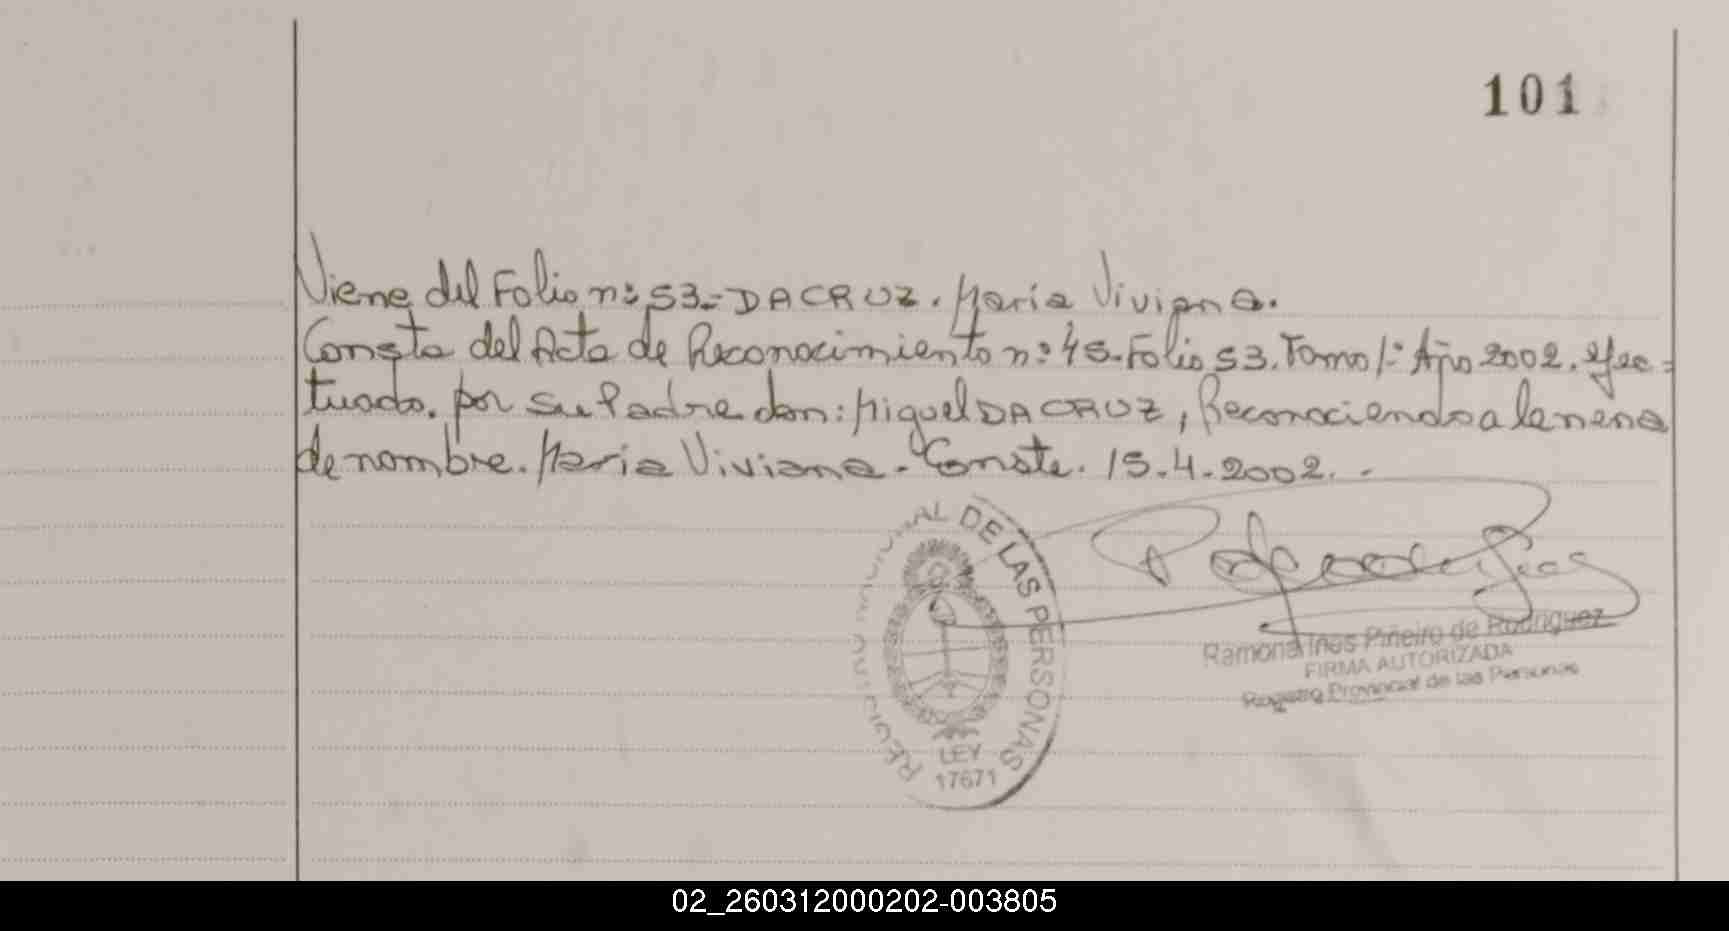 101
Viene del Folio nº 53.= DA CRUZ. Maria Viviana.
Consta del Acta de Reconocimiento nº 45. Folio 53. Tomo 1º Año 2002. efec=
tuado. por su Padre don: Miguel DA CRUZ, Reconociendo a la nena
de nombre. Maria Viviana. Conste. 15.4.2002. -
AL DE LAS PERSONAS
LEY
17671
Ramona Ines Piñeiro de Rodriguez
FIRMA AUTORIZADA
Registro Provincial de las Personas
02_260312000202-003805